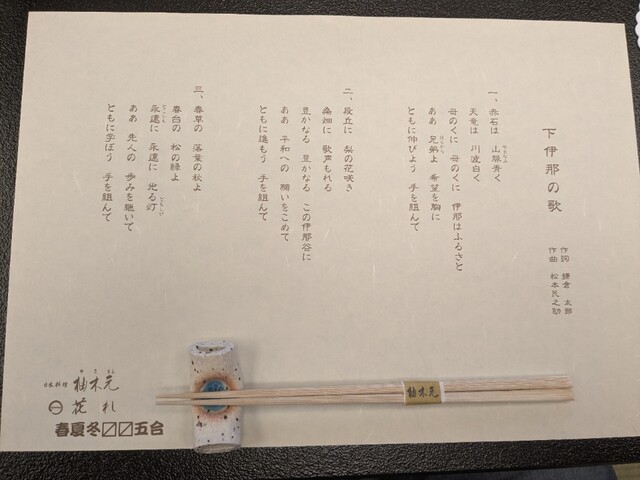 下伊那の歌
作詞 鎌倉 太郎
作曲 松本民之助
一、赤石は 山脈青く
やまなみ
天竜は 川波白く
母のくに 母のくに 伊那はふるさと
ああ 兄弟よ 希望を胸に
はらから
ともに伸びよう 手を組んで
二、段丘に 梨の花咲き
桑畑に 歌声もれる
豊かなる 豊かなる この伊那谷に
ああ 平和への 願いをこめて
ともに進もう 手を組んで
三、春草の 落葉の秋よ
春台の 松の緑よ
永遠に 永遠に 光る灯
とこしえ
ともしび
ああ 先人の 歩みを継いで
ともに学ぼう 手を組んで
日本料理 柚木元
ゆきもと
花札
春夏冬〼〼五合
柚木元